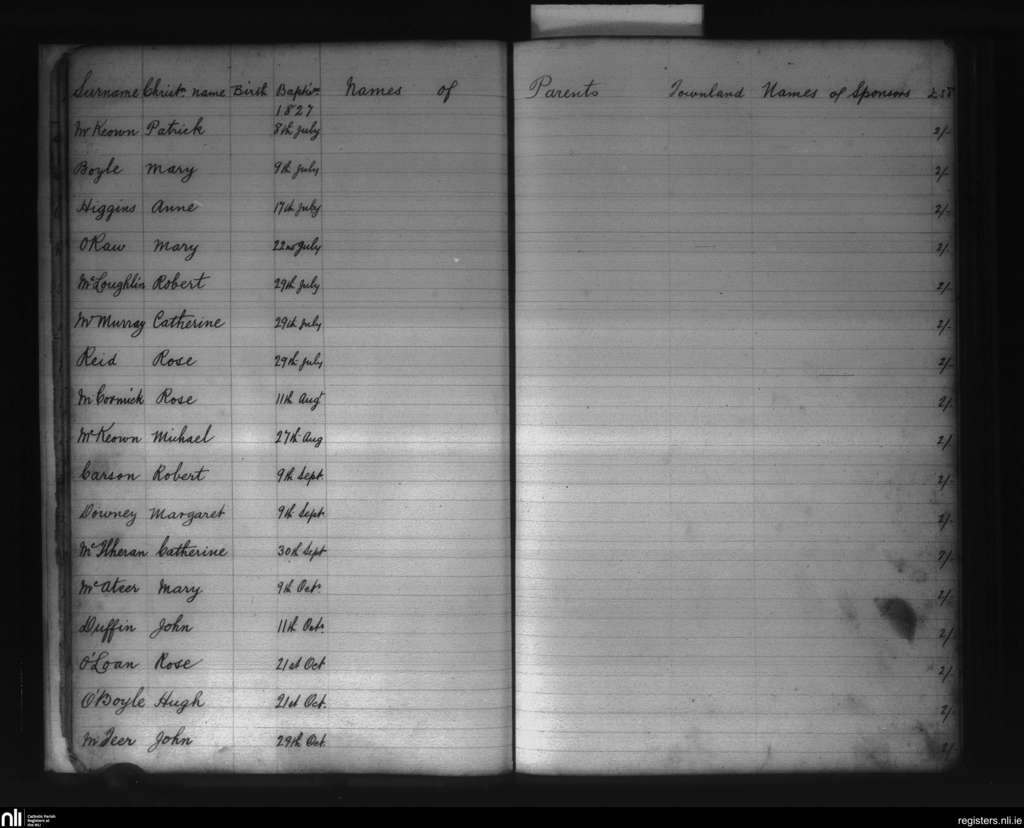 Surname Christn. name Birth Baptism Names of Parents Townland Names of Sponsors £ s d
1827
McKeown Patrick 8th July 2/-
Boyle Mary 9th July 2/-
Higgins Anne 17th July 2/-
O'Raw Mary 22nd July 2/-
McLoughlin Robert 29th July 2/-
McMurray Catherine 29th July 2/-
Reid Rose 29th July 2/-
McCormick Rose 11th Augt 2/-
McKeown Michael 27th Aug 2/-
Carson Robert 9th Sept. 2/-
Downey Margaret 9th Sept. 2/-
McIlheran Catherine 30th Sept 2/-
McAteer Mary 9th Oct. 2/-
Duffin John 11th Oct. 2/-
O'Loan Rose 21st Oct 2/-
O'Boyle Hugh 21st Oct. 2/-
McTeer John 29th Oct. 2/-
nli Catholic Parish Registers at the NLI
registers.nli.ie